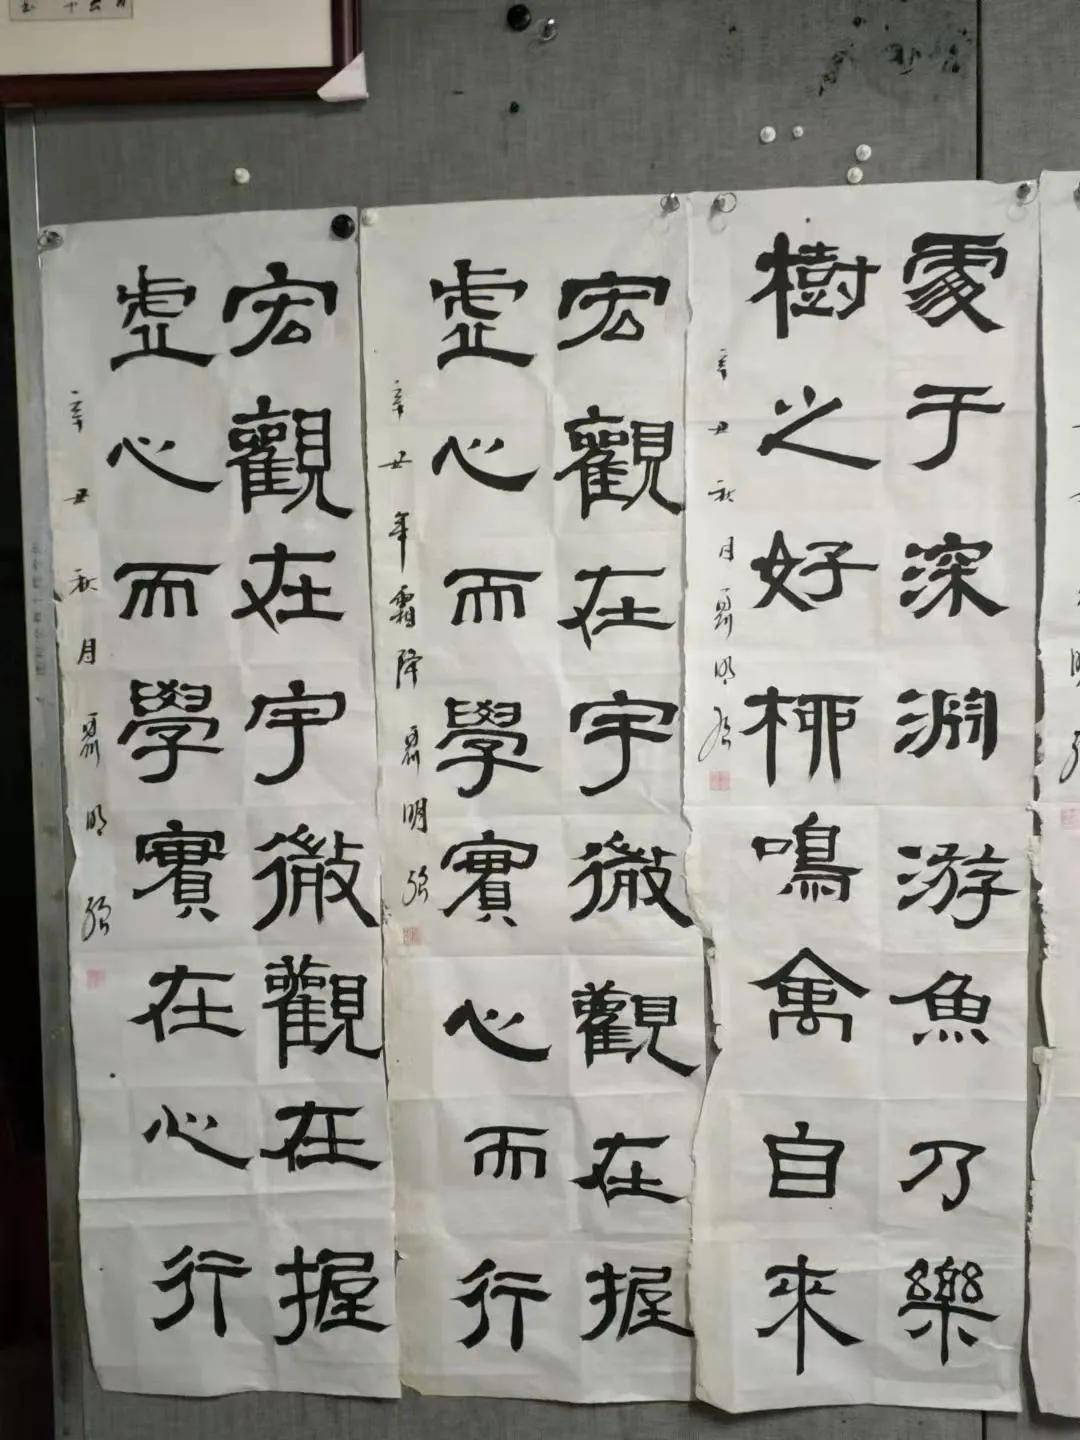 處于深淵游魚乃樂
樹之好柳鳴禽自來
辛丑秋月明
宏觀在宇微觀在握
虛心而學實心而行
辛丑年霜降明強
宏觀在宇微觀在握
虛心而學實在心行
辛丑秋月明強